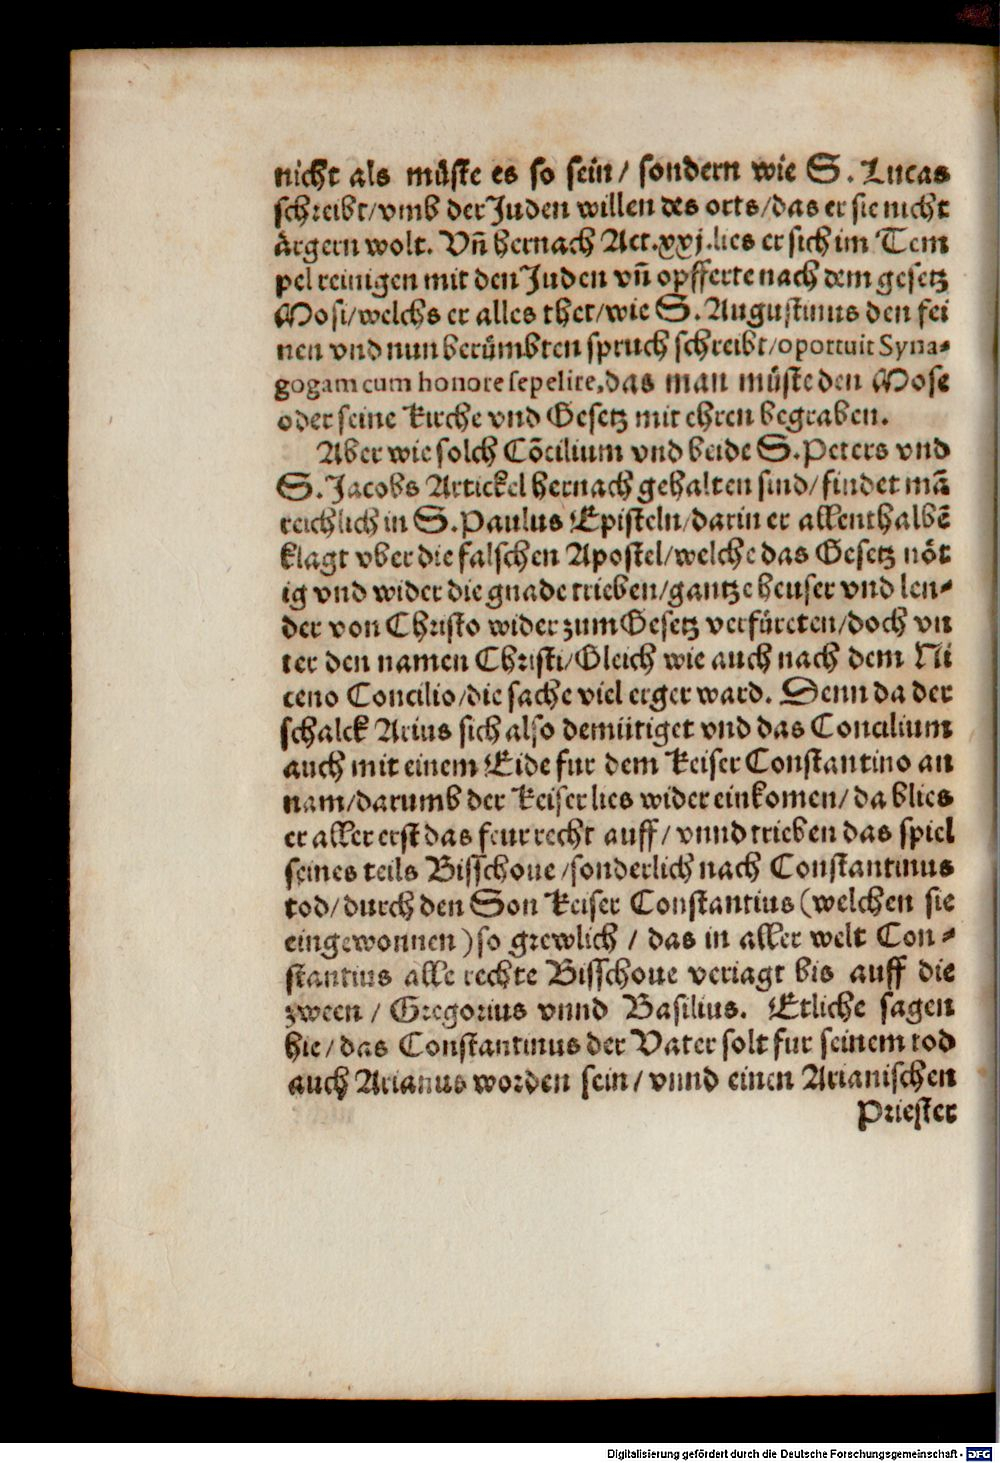 nicht als müste es so sein/ sondern wie S. Lucas
schreibt/vmb der Juden willen des orts/das er sie nicht
ärgern wolt. Vñ hernach Act.xxj.lies er sich im Tem
pel reinigen mit den Juden vñ opfferte nach dem gesetz
Mosi/welchs er alles thet/wie S. Augustinus den fei
nen vnd nun berümbten spruch schreibt/oportuit Syna-
gogam cum honore sepelire,das man müste den Mose
oder seine Kirche vnd Gesetz mit ehren begraben.
Aber wie solch Cõcilium vnd beide S. Peters vnd
S. Jacobs Artickel hernach gehalten sind/findet mã
reichlich in S. Paulus Episteln/darin er allenthalbẽ
klagt vber die falschen Apostel/welche das Gesetz nöt
ig vnd wider die gnade trieben/gantze heuser vnd len-
der von Christo wider zum Gesetz verfüreten/doch vn
ter den namen Christi/Gleich wie auch nach dem Ni
ceno Concilio/die sache viel erger ward. Denn da der
schalck Arius sich also demütiget vnd das Concilium
auch mit einem Eide fur dem Keiser Constantino an
nam/darumb der Keiser lies wider einkomen/da blies
er aller erst das feur recht auff/vnnd trieben das spiel
seines teils Bisschoue/sonderlich nach Constantinus
tod/durch den Son Keiser Constantius (welchen sie
eingewonnen) so grewlich / das in aller welt Con-
stantius alle rechte Bisschoue veriagt bis auff die
zween / Gregorius vnnd Basilius. Etliche sagen
hie/das Constantinus der Vater solt fur seinem tod
auch Arianus worden sein/vnnd einen Arianischen
Priester
Digitalisierung gefördert durch die Deutsche Forschungsgemeinschaft - DFG